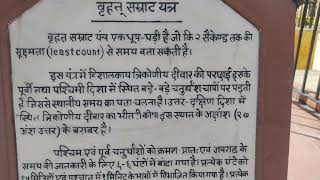 वृहत् सम्राट यंत्र
वृहत सम्राट यंत्र एक धूप-घड़ी है जो कि २ सैकेण्ड तक की
सूक्ष्मता (least count) से समय बता सकती है।
इस यंत्र में विशालकाय त्रिकोणीय दीवार की परछाई इसके
पूर्वी तथा पश्चिमी दिशा में स्थित बड़े-बड़े चतुर्थांश चापों पर पड़ती
है जिससे स्थानीय समय का पता चलता है। उत्तर-दक्षिण दिशा में
स्थित त्रिकोणीय दीवार का भीतरी कोण इस स्थान के अक्षांश (२७
अंश उत्तर) के बराबर है।
पश्चिम एवं पूर्व चतुर्थांशों को क्रमशः प्रातः एवं अपराह्न के
समय की जानकारी के लिए ६-६ घंटों में बांटा गया है। प्रत्येक घंटे को
मिनट के भागों में विभाजित किया गया है। प्रत्येक